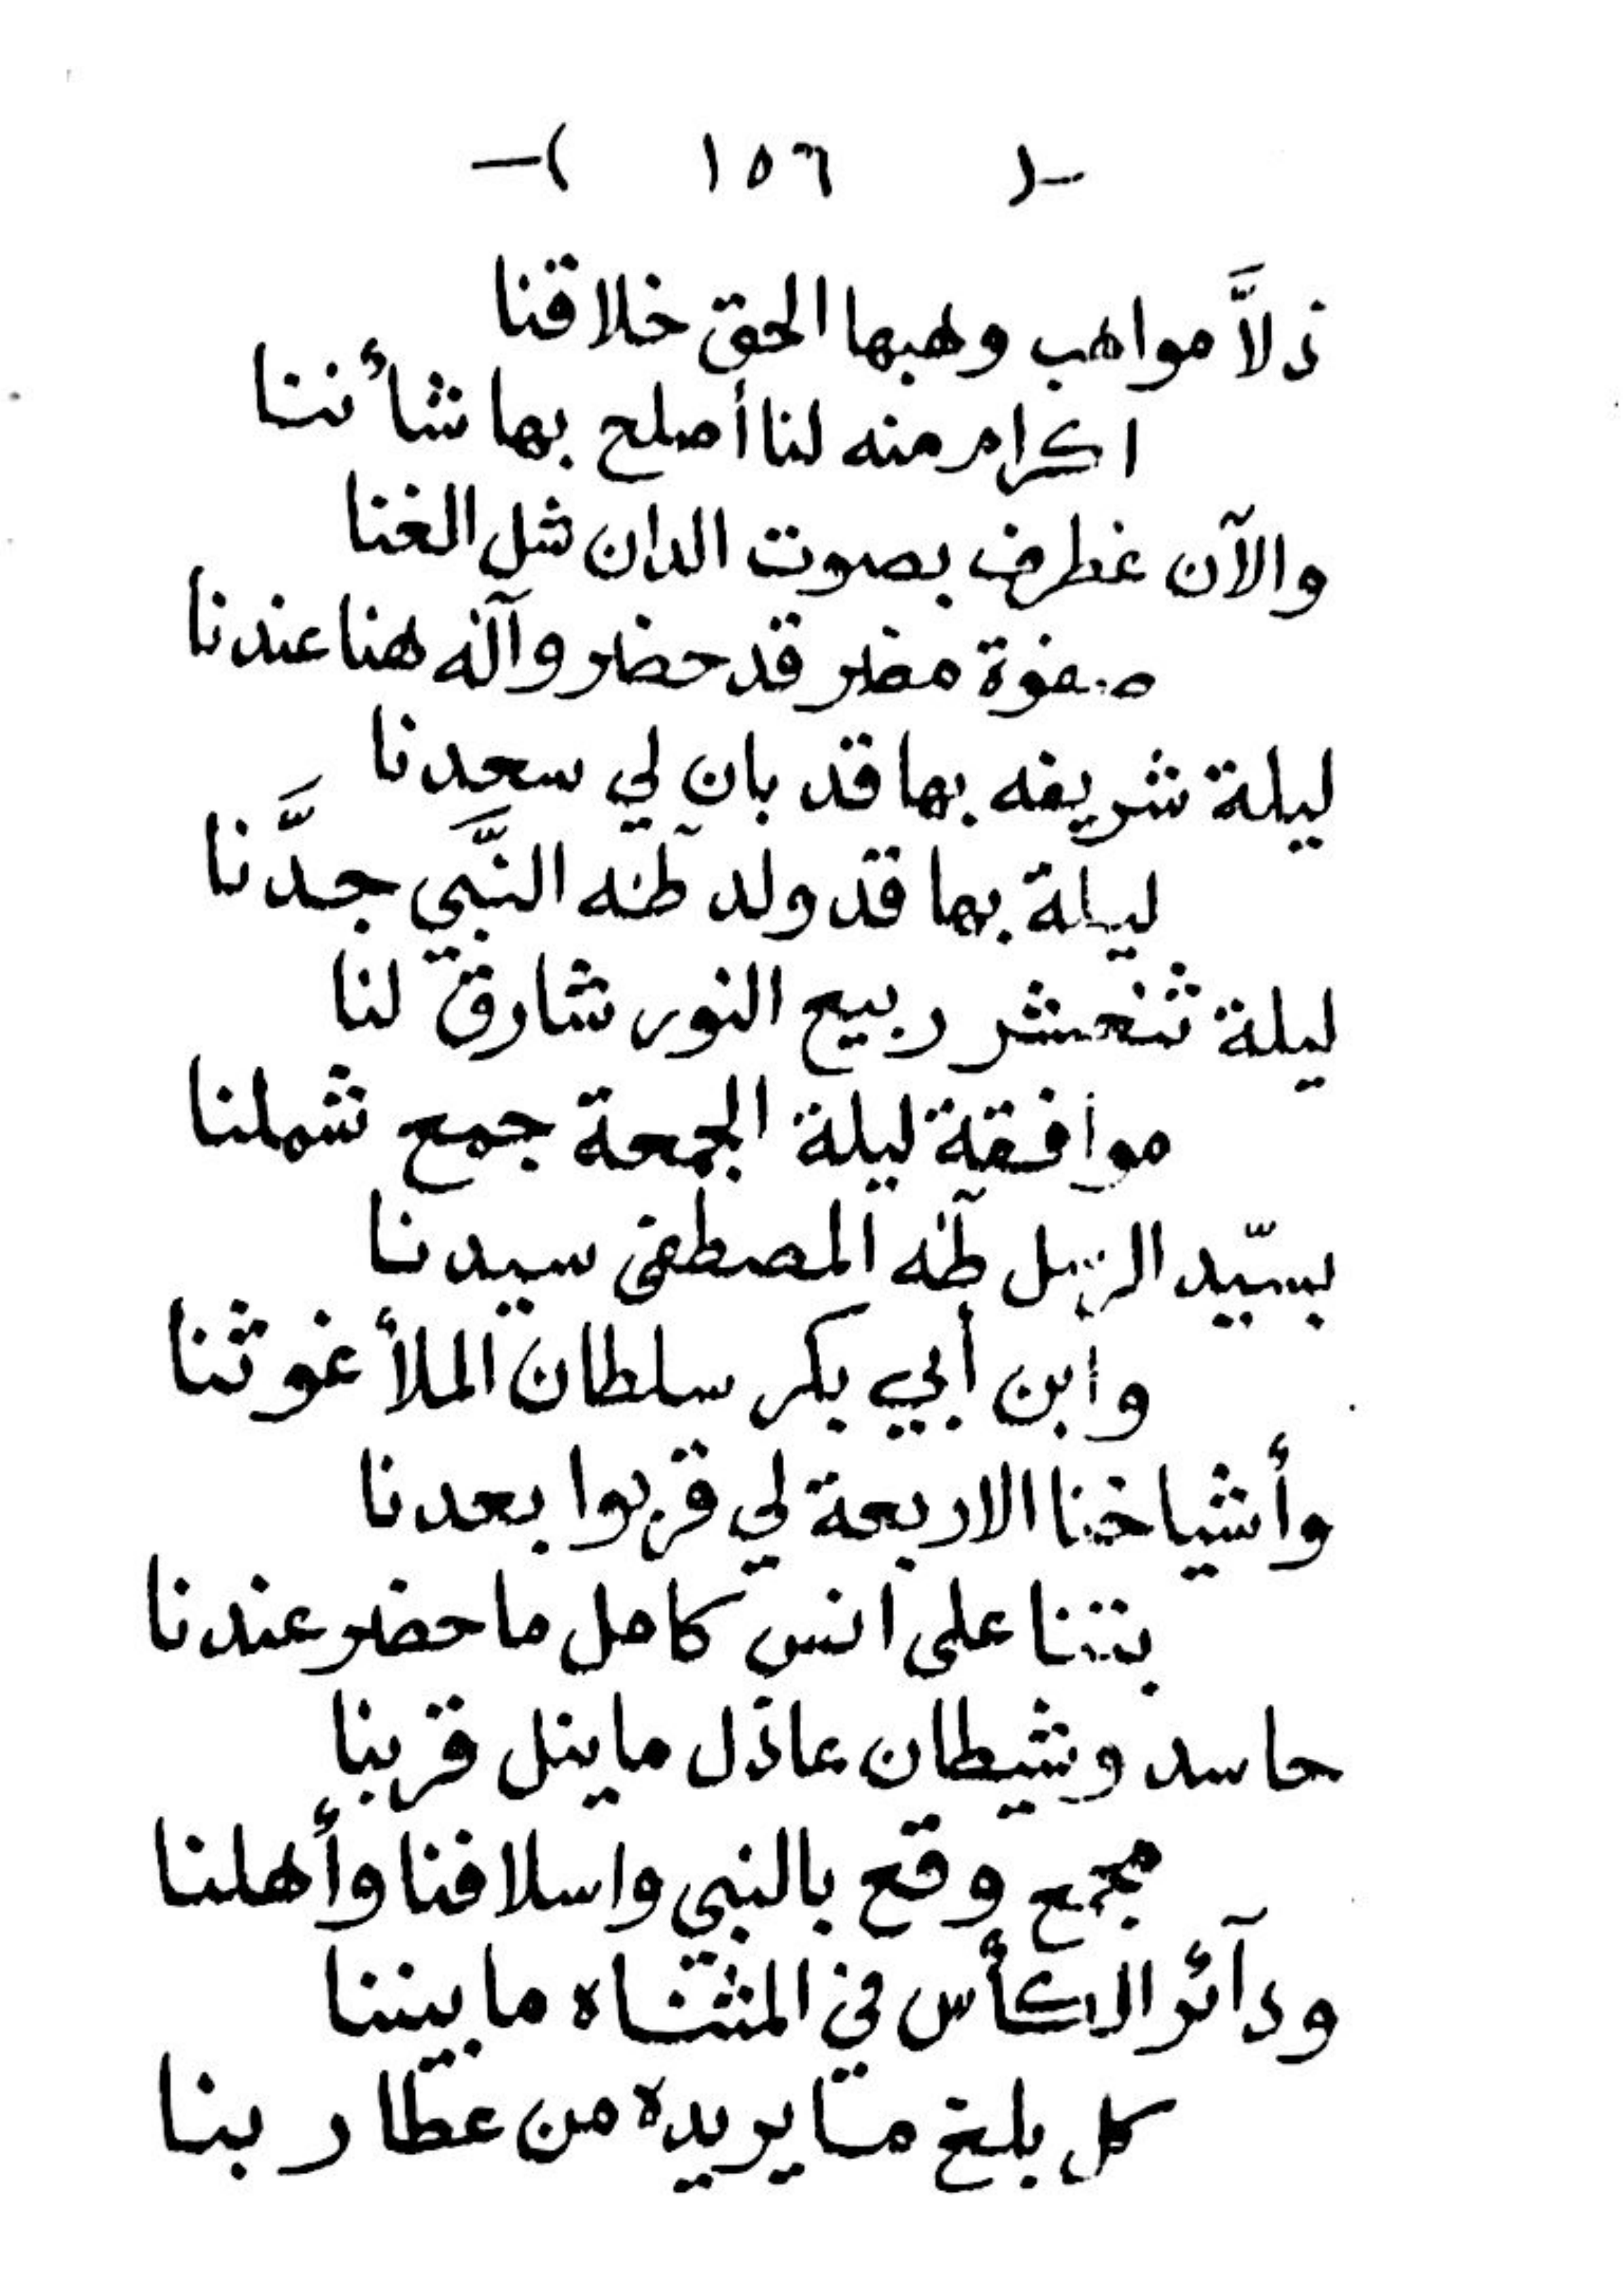 -( ١٥٦ )-
ذلاَّ مواهب وهبها الحق خلاقنا
اكرام منه لنا أصلح بها شأننا
والآن غطرف بصوت الدان شل الغنا
صفوة مضر قد حضر وآله هنا عندنا
ليلة شريفه بها قد بان لي سعدنا
ليلة بها قد ولد طٰه النَّبي جدَّنا
ليلة ثنعشر ربيع النور شارق لنا
موافقة ليلة الجمعة جمع شملنا
بسيّد الرسل طٰه المصطفى سيدنا
وابن أبي بكر سلطان الملأ غوثنا
وأشياخنا الاربعة لي قربوا بعدنا
بتنا على انس كامل ما حضر عندنا
حاسد وشيطان عاذل ما ينل قربنا
مجمع وقع بالنبي واسلافنا وأهلنا
ودآئر الكأس في المثناه ما بيننا
كل بلغ ما يريده من عطا ربنا